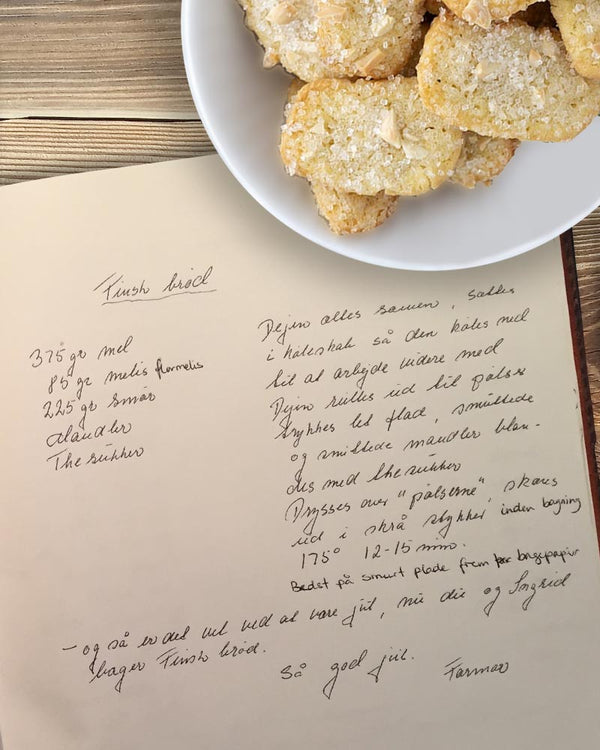 Finsk brød
375 gr mel
85 gr melis flormelis
225 gr smør
Mandler
The sukker
Dejen æltes samen, sættes
i køleskab så den køles ned
til at arbejde videre med
Dejen rulles ud til pølser
trykkes let flad, smuttede
og smuttede mandler blan-
des med the sukker
Drysses over "pølserne" skæres
ud i skrå stykker inden bagning
175° 12-15 min.
Bedst på smurt plade frem for bagepapir
- og så er det vel ved at være jul, nu du og Ingrid
bager Finsk brød.
Så god jul. Farmor